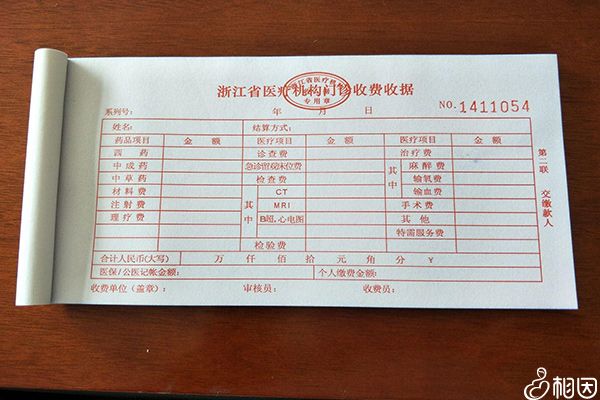 浙江省医疗机构门诊收费收据
浙江省医疗机构
专用章
系列号: 年 月 日 NO.1411054
姓名: 结算方式:
药品项目 金额 医疗项目 金额 医疗项目 金额
西药 诊查费 治疗费
中成药 急诊留观床位费 其中 麻醉费
中草药 检查费 输氧费
材料费 其中 CT 输血费
注射费 MRI 手术费
理疗费 B超,心电图 其他
特需服务费
检验费
合计人民币(大写) 万 仟 佰 拾 元 角 分 ¥
医保/公医记帐金额: 个人缴费金额:
收费单位(盖章): 审核员: 收费员:
第二联 交缴款人
相因